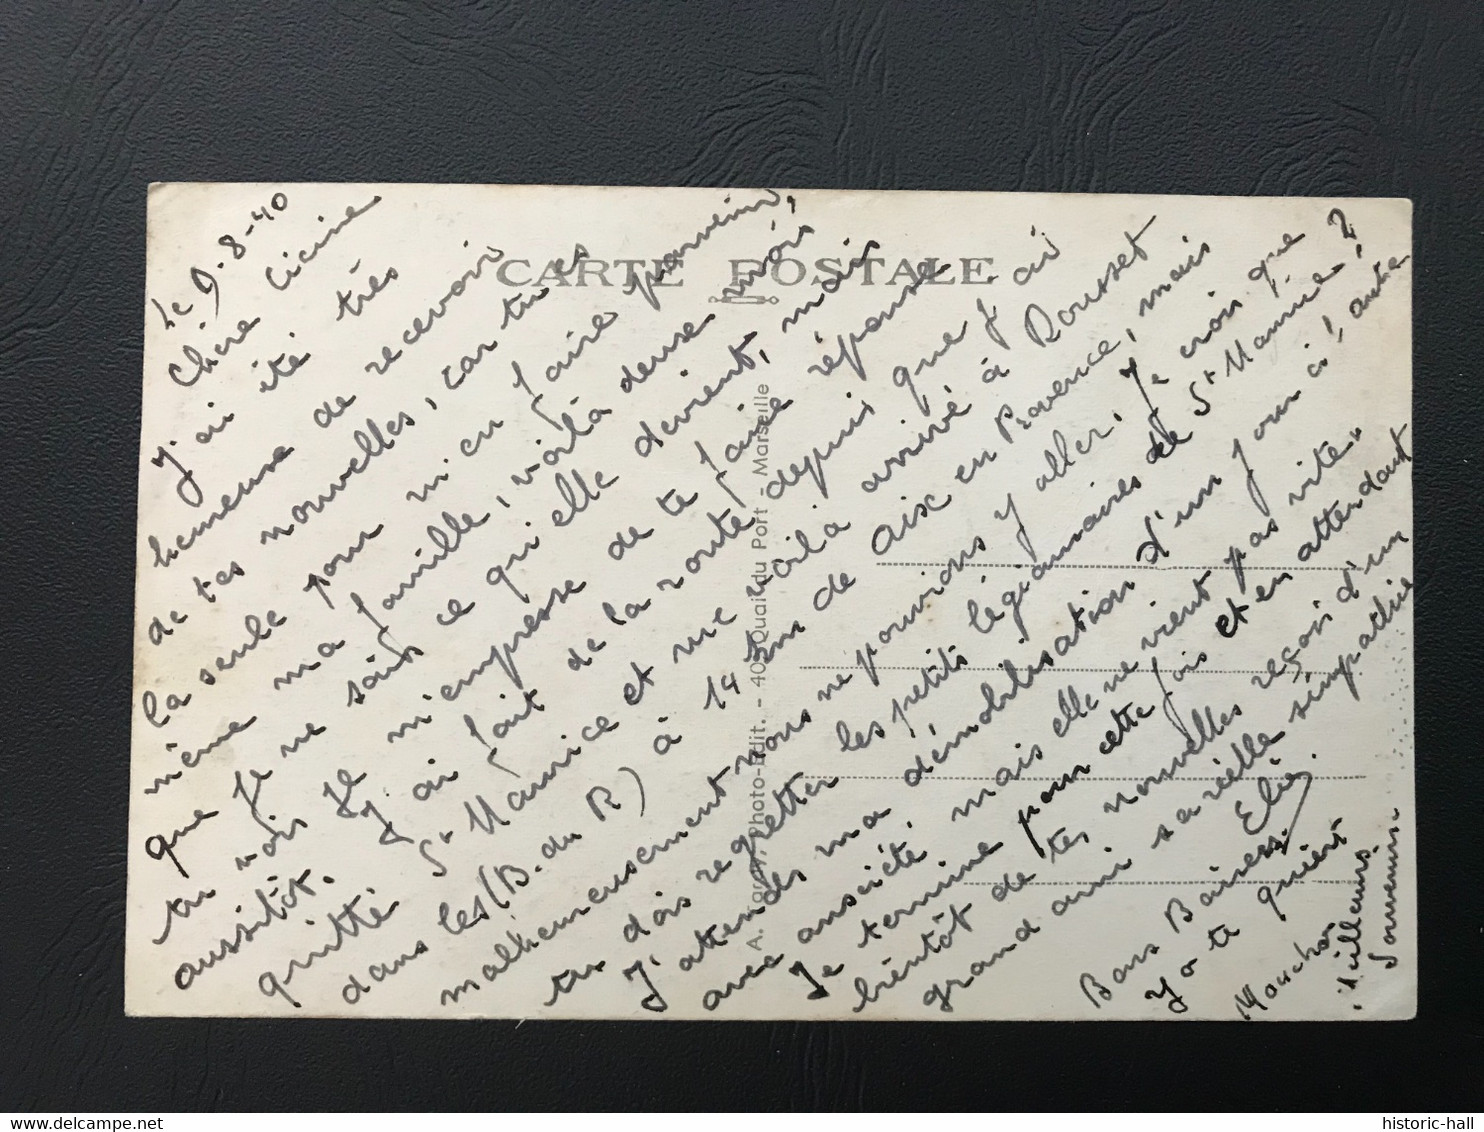 le 9-8-40
Chère Cicine
J'ai été très
heureuse de recevoir
de tes nouvelles, car tu es
la seule pour m'en faire parvenir,
même ma famille, voilà deux mois
que je ne sait ce qu'elle devient, mais
tu vois je m'empresse de te faire réponse
aussitôt. J'ai fait de la route depuis que j'ai
quitté St Mamice et me voilà arrivé à Rousset
dans les (B. du R) à 14 km de Aix en Provence, mais
malheureusement nous ne pouvions y aller. Je crois que
tu dois regretter les petits légionnaires de St Mamice?
J'attends ma démobilisation d'un jour à l'autre
avec anxiété, mais elle ne vient pas vite"
Je termine pour cette fois et en attendant
bientôt de tes nouvelles reçois d'un
grand ami sa réelle sympathie
Bons Baisers. Elie
Y a te quient
Mouchon
Meilleurs
Souvenirs
CARTE POSTALE
A. Tardy, Photo-Edit. - 40, Quai du Port - Marseille
historic-hall